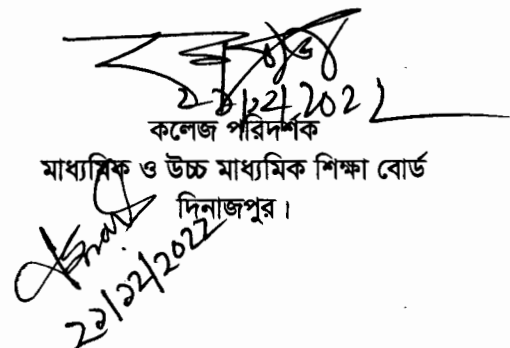 ২১/১২/২০২২
কলেজ পরিদর্শক
মাধ্যমিক ও উচ্চ মাধ্যমিক শিক্ষা বোর্ড
দিনাজপুর।
২১/১২/২০২২